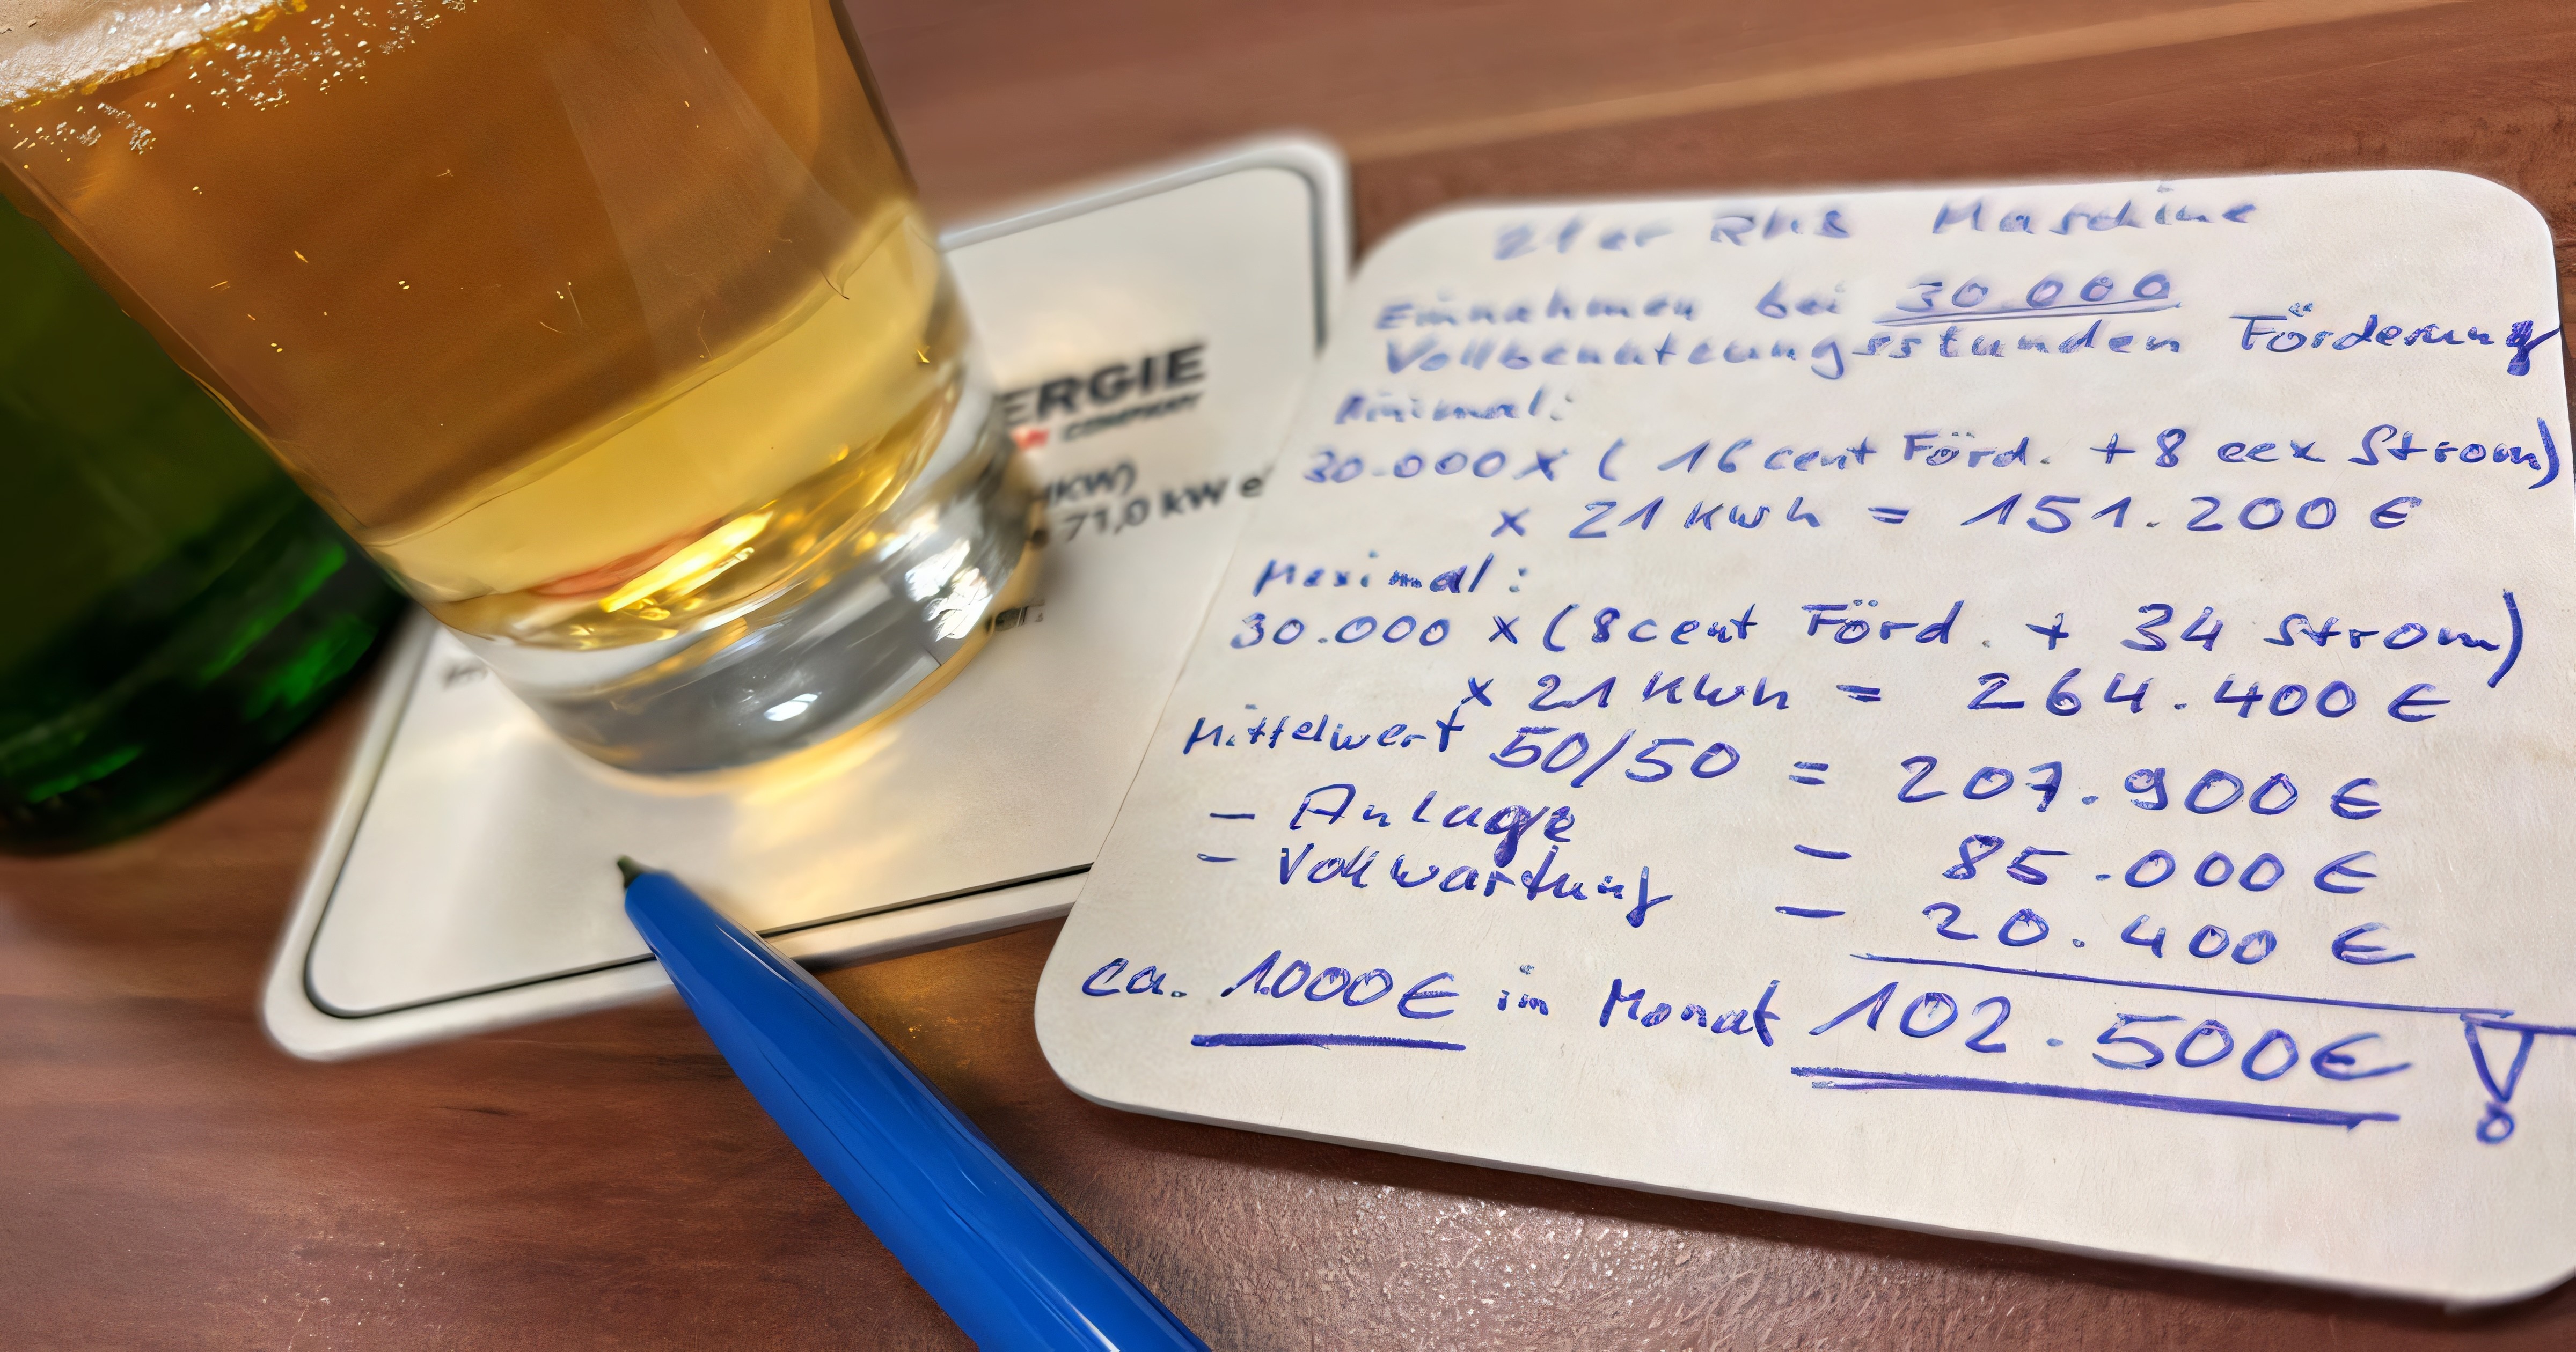 ERGIE
COMPANY
HKW)
71,0 kW e
21er RMB Maschine
Einnahmen bei 30.000
Vollbenutzungsstunden Förderung
Minimal:
30.000 x ( 16 cent Förd. + 8 eex Strom)
x 21 kwh = 151.200 €
Maximal:
30.000 x (8 cent Förd. + 34 Strom)
x 21 kwh = 264.400 €
Mittelwert 50/50 = 207.900 €
- Anlage - 85.000 €
- Vollwartung - 20.400 €
ca. 1.000€ im Monat 102.500€ !